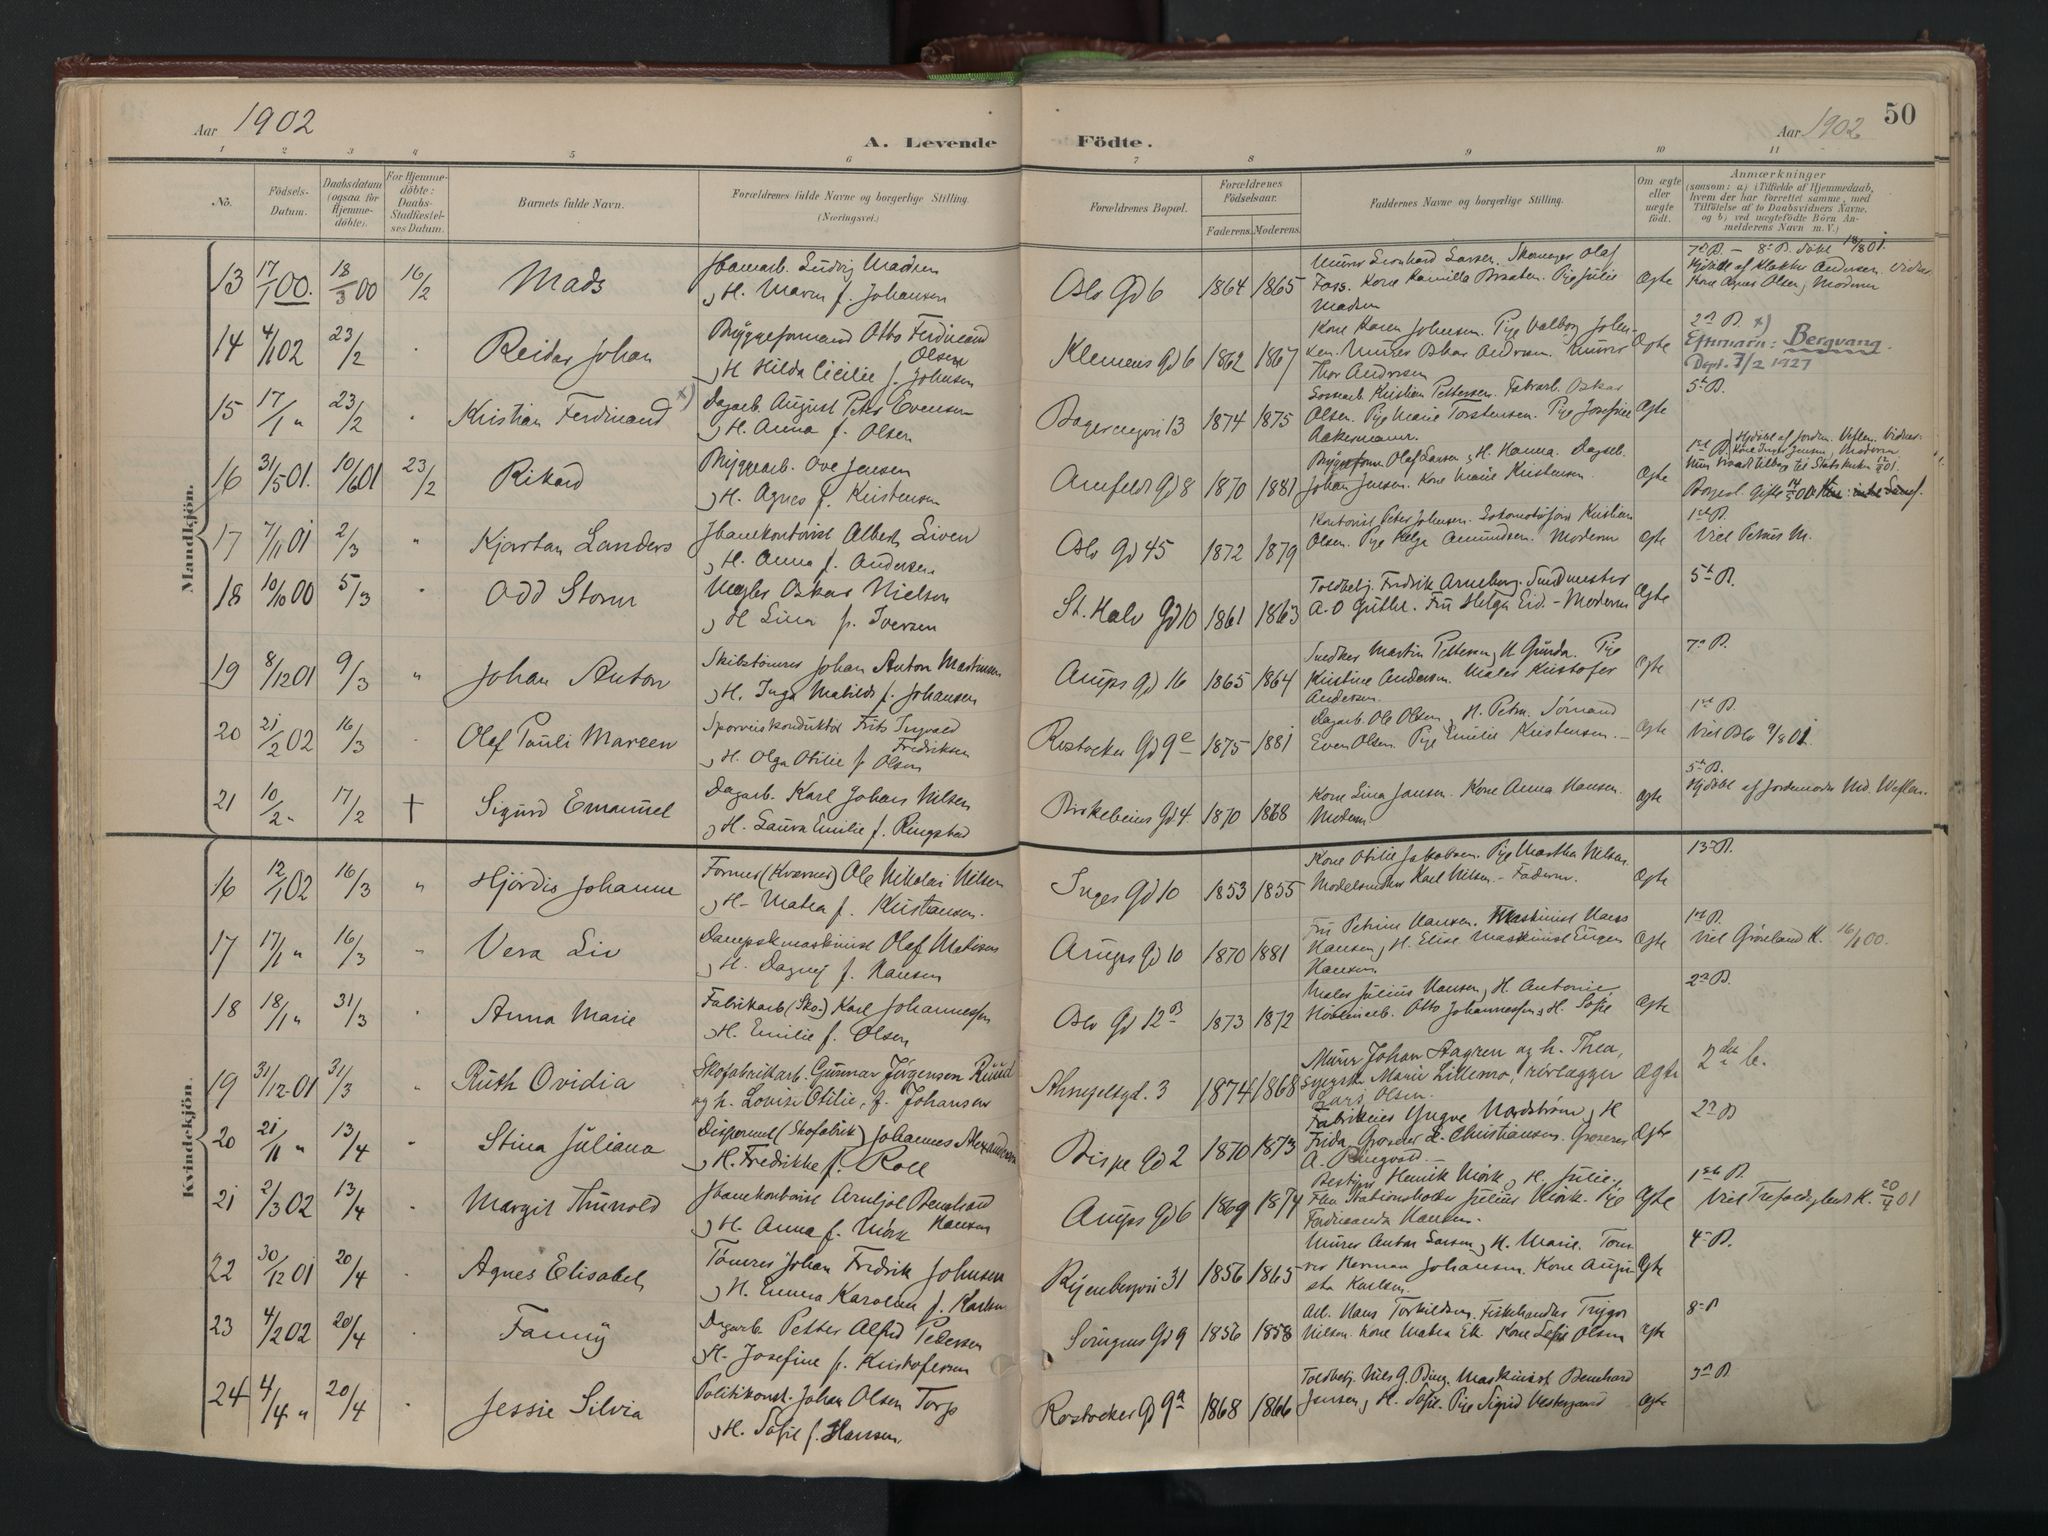 Aar 1902
A. Levende Födte.
Aar 1902
50
1 2 3 4 5 6 7 8 9 10 11
No.
Födsels-Datum.
Daabsdatum (ogsaa for Hjemme-döbte).
For Hjemme-döbte: Daabs-Stadfæstel-ses Datum.
Barnets fulde Navn.
Forældrenes fulde Navne og borgerlige Stilling. (Næringsvei.)
Forældrenes Bopæl.
Forældrenes Födselsaar.
Faderens. Moderens.
Faddernes Navne og borgerlige Stilling.
Om ægte eller uægte födt.
Anmærkninger
(saasom: a) i Tilfælde af Hjemmedaab, hvem der har forrettet samme, med Tilföielse af to Daabsvidners Navne, og b) ved uægtefödte Börn Anmelderens Navn m. V.)
Mandkjön.
13 17/1 00. 18/3 00 16/2 Mads
Ludvig Madsen
H. Maren f. Johansen
Oslo Gd 6 1864 1865
Murer Leonhard Larsen. Skomager Olaf
Foss. Kone Kamilla Braaten. Pige Julie
Madsen
Ægte
7de B. – 8de B. døbt 18/8 01.
Kone Agnes Olsen, Moderen
14 4/1 02 23/2 " Reidar Johan
Bryggeformand Otto Ferdinand
Olsen
H Hilda Cicilie f. Johnsen
Klemens Gd 6 1862 1867
Kone Karen Johnsen. Pige Valborg John-
sen. Murer Oskar Andersen. Murer
Thor Andersen
Ægte
2n B. x)
Efternavn: Bergvang.
Dept. 7/2 1927
15 17/1 " 23/2 " Kristian Ferdinand x)
Dagarb. August Peter Evensen
H. Anna f. Olsen
13 1874 1875
Kristian Pettersen. Fabrarb. Oskar
Olsen. Pige Marie Torstensen. Pige Josefine
Aakermann.
Ægte
5te B.
16 31/5 01. 10/6 01 23/2 Rikard
Bryggearb. Ove Jensen
H. Agnes f. Kristensen
Arnfeldt Gd 8 1870 1881
Olaf Larsen H. Hanna. Dagarb.
Johan Jensen. Kone Marie Kristensen.
Ægte
1ste B.
17 7/11 01 2/3 " Kjartan Landers
Jbanekontorist Albert Siven
H. Anna f. Andersen
Oslo Gd 45 1872 1879
Kontorist Peter Johnsen. Kristian
Olsen. Pige Helga Amundsen. Moderen
Ægte
1ste B.
Viet Petrus M.
18 10/10 00 5/3 " Odd Storm
Megler Oskar Nielsen
H Lina f. Iversen
St. Halv Gd 10 1861 1863
Toldbetj. Fredrik Arneberg.
A. O Fru Helga Eid. – Moderen
Ægte
5te B.
19 8/12 01 9/3 " Johan Anton
Skibstømrer Johan Anton Martinsen
H. Inga Matilde f. Johansen
Arups Gd 16 1865 1864
Snedker Martin Pettersen H Gunda. Pige
Kristine Andersen. Maler Kristofer
Andersen
Ægte
7de B.
20 21/2 02 16/3 " Olaf Pauli Mareen
Sporveiskonduktør Frits Ingvald
Fredriksen
H. Olga Otilie f. Olsen
Rostocker Gd 9 e 1875 1881
Dagarb. Ole Olsen, H. Petra. Sømand
Even Olsen. Pige Emilie Kristensen.
Ægte
1ste B.
Viet Oslo 9/8 01.
21 10/2 " 17/2 † Sigurd Emanuel
Dagarb. Karl Johan Nilsen
H. Laura Emilie f. Ringstad
Birkebeiner Gd 4. 1870 1868
Kone Lina Jansen. Kone Anna Hansen.
Moderen
Ægte
5te B.
Hjdøbt af Jordemoder Weflen.
Kvindekjön.
16 12/1 02 16/3 " Hjørdis Johanne
Former (Kværner) Ole Nikolai Nilsen
H. Matea f. Kristiansen.
Inges Gd 10 1853 1855
Kone Otilie Jakobsen. Pige Martha Nilsen.
Modelsnedker Karl Nilsen. – Faderen.
Ægte
13de B.
17 17/1 " 16/3 " Vera Liv
Dampskmaskinist Olaf Madsen
H. Dagny f. Hansen
Arups Gd 10 1870 1881
Fru Petrine Hansen. Maskinist Hans
Hansen, H. Elise Maskinist Eugen
Hansen
Ægte
1ste B.
Viet Grønland K. 16/1 00.
18 18/1 " 31/3 " Anna Marie
Fabrikarb (Sko.) Karl Johannessen
H. Emilie f. Olsen
Oslo Gd 12 B 1873 1872
Maler Julius Hansen, H. Antonie,
Høvleriarb. Otto Johannessen, H. Sofie
Ægte
2n B.
19 31/12 01 31/3 " Ruth Ovidia
Skofabrikarb. Gunnar Jørgensen Ruud
og h. Lovise Otilie, f. Johansen
Ahnfeltsgd. 3 1874 1868
Murer Johan Aagren og h. Thea,
sypige Marie Lillemo, rørlægger
Lars Olsen.
Ægte
2det b.
20 21/11 " 13/4 " Stina Juliana
Disponent (Skofabrik) Johannes Alexandersen
H. Fredrikke f. Roll
Bispe Gd 2 1870 1873
Fabrikeier Yngve Nordstrøm, H
Frida, Grosserer L. Christiansen. Grosserer
A. Ringvold. –
Ægte
2n B
21 2/3 02 13/4 " Margit Thunold
Jbanekontorist Arnljot Bernhard
Hansen
H. Anna f. Mørk
Arups Gd 6 1869 1874
Bestyrer Henrik Mørk, H. Julie,
Fhv. Stationsholder Julius Mørk. Pige
Ferdinanda Hansen.
Ægte
1ste B.
Viet Trefoldighets K. 20/4 01
22 30/12 01 20/4 " Agnes Elisabeth
Tømrer Johan Fredrik Johnsen
H. Emma Karoline f. Karlsen
Ryenbergvei 31 1856 1865
Murer Anton Larsen, H. Marie. Tøm-
rer Herman Johansen. Kone Augu-
sta Karlsen.
Ægte
4de B.
23 4/2 02 20/4 " Fanny
Dagarb. Petter Alfred Pedersen
H. Josefine f. Kristofersen
Gd 9 1856 1858
Arb. Hans Torkildsen. Fiskehandler Trygve
Nilsen. Kone Matea Ek. Kone Sofie Olsen
Ægte
8de B
24 4/4 " 20/4 " Jessie Silvia
Politikonst. Johan Olsen Torp
H. Sofie f. Hansen.
Rostocker Gd 9 a 1868 1866
Toldbetj. Nils G. Ring. Maskinist Bernhard
Jensen, H. Sofie. Pige Sigrid Vestergaard
Ægte
3n B.